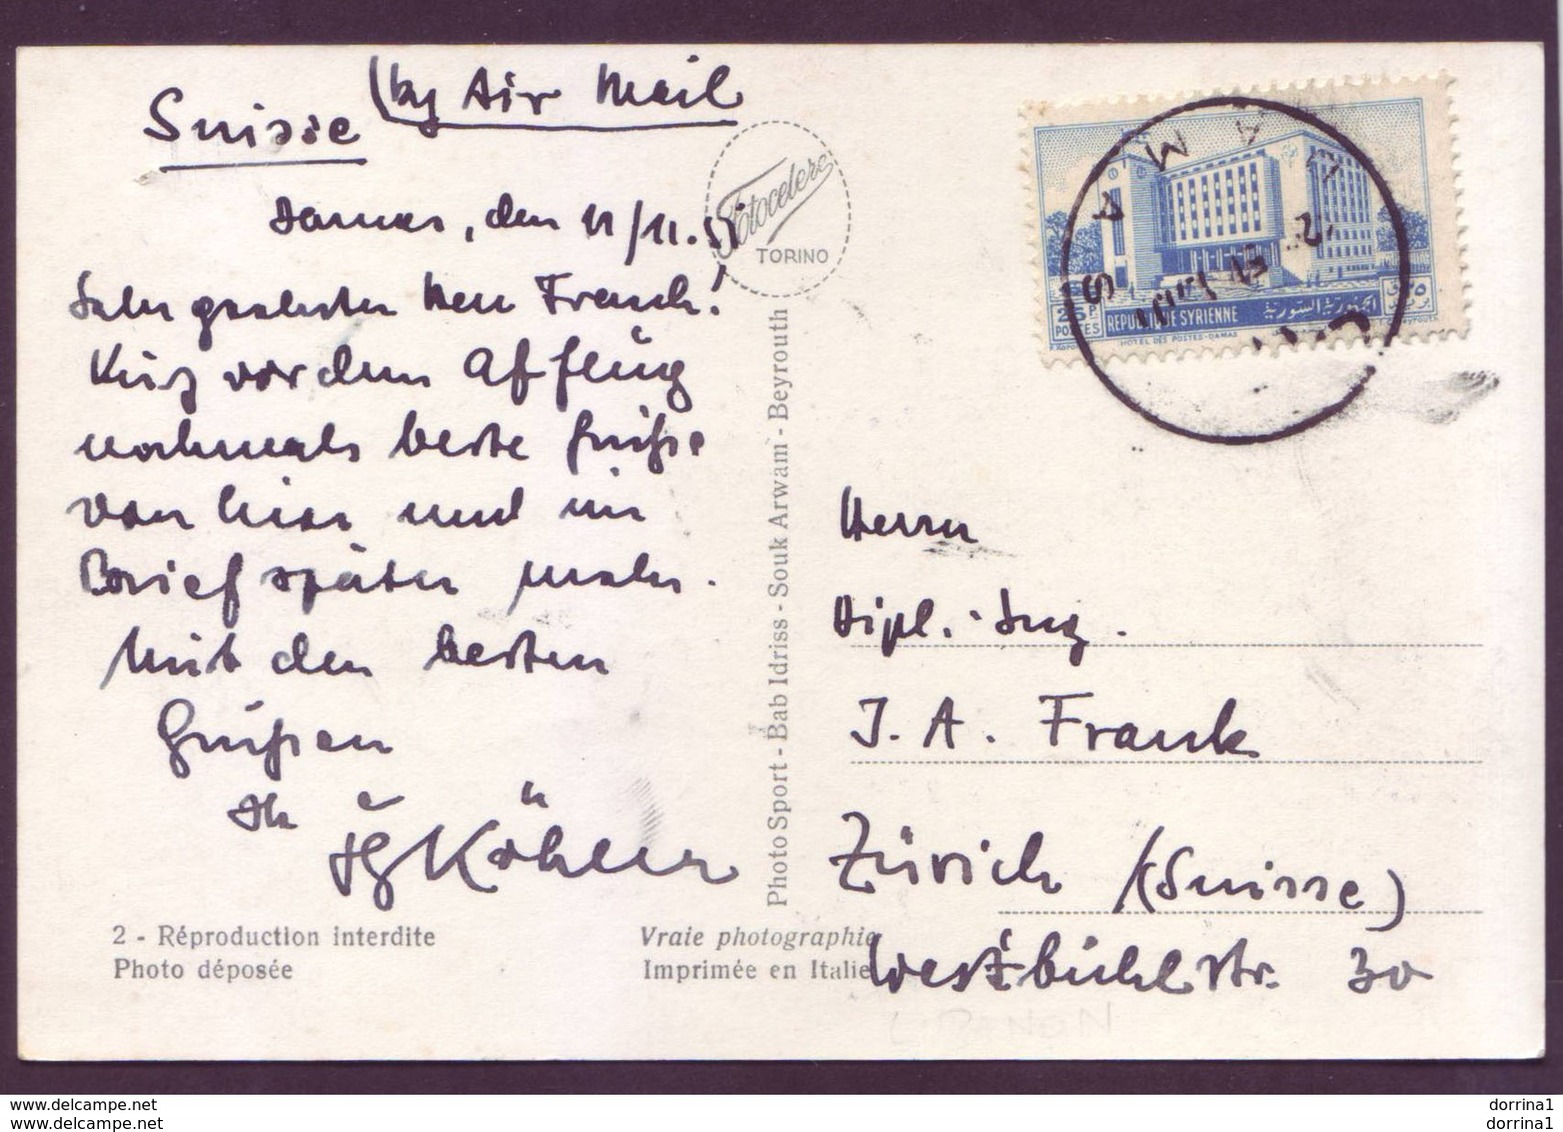 (by Air Mail
Suisse
Damas, den 11/11.51
Sehr geehrter Herr Franck!
Kurz vor dem Abflug
nochmals beste Grüße
von hier und im
Brief später mehr.
Mit den besten
Grüßen
Ihr
Köhler
Fotocelere
TORINO
Photo Sport - Bab Idriss - Souk Arwam - Beyrouth
2 - Réproduction interdite
Photo déposée
Vraie photographie
Imprimée en Italie
DAMAS
25 P
POSTES
REPUBLIQUE SYRIENNE
الجمهورية السورية
HOTEL DES POSTES-DAMAS
Herrn
Dipl.-Ing.
J. A. Franck
Zürich (Suisse)
Westbühlstr. 30
LIBANON
delcampe.net
dorrina1
delcampe.net
dorrina1